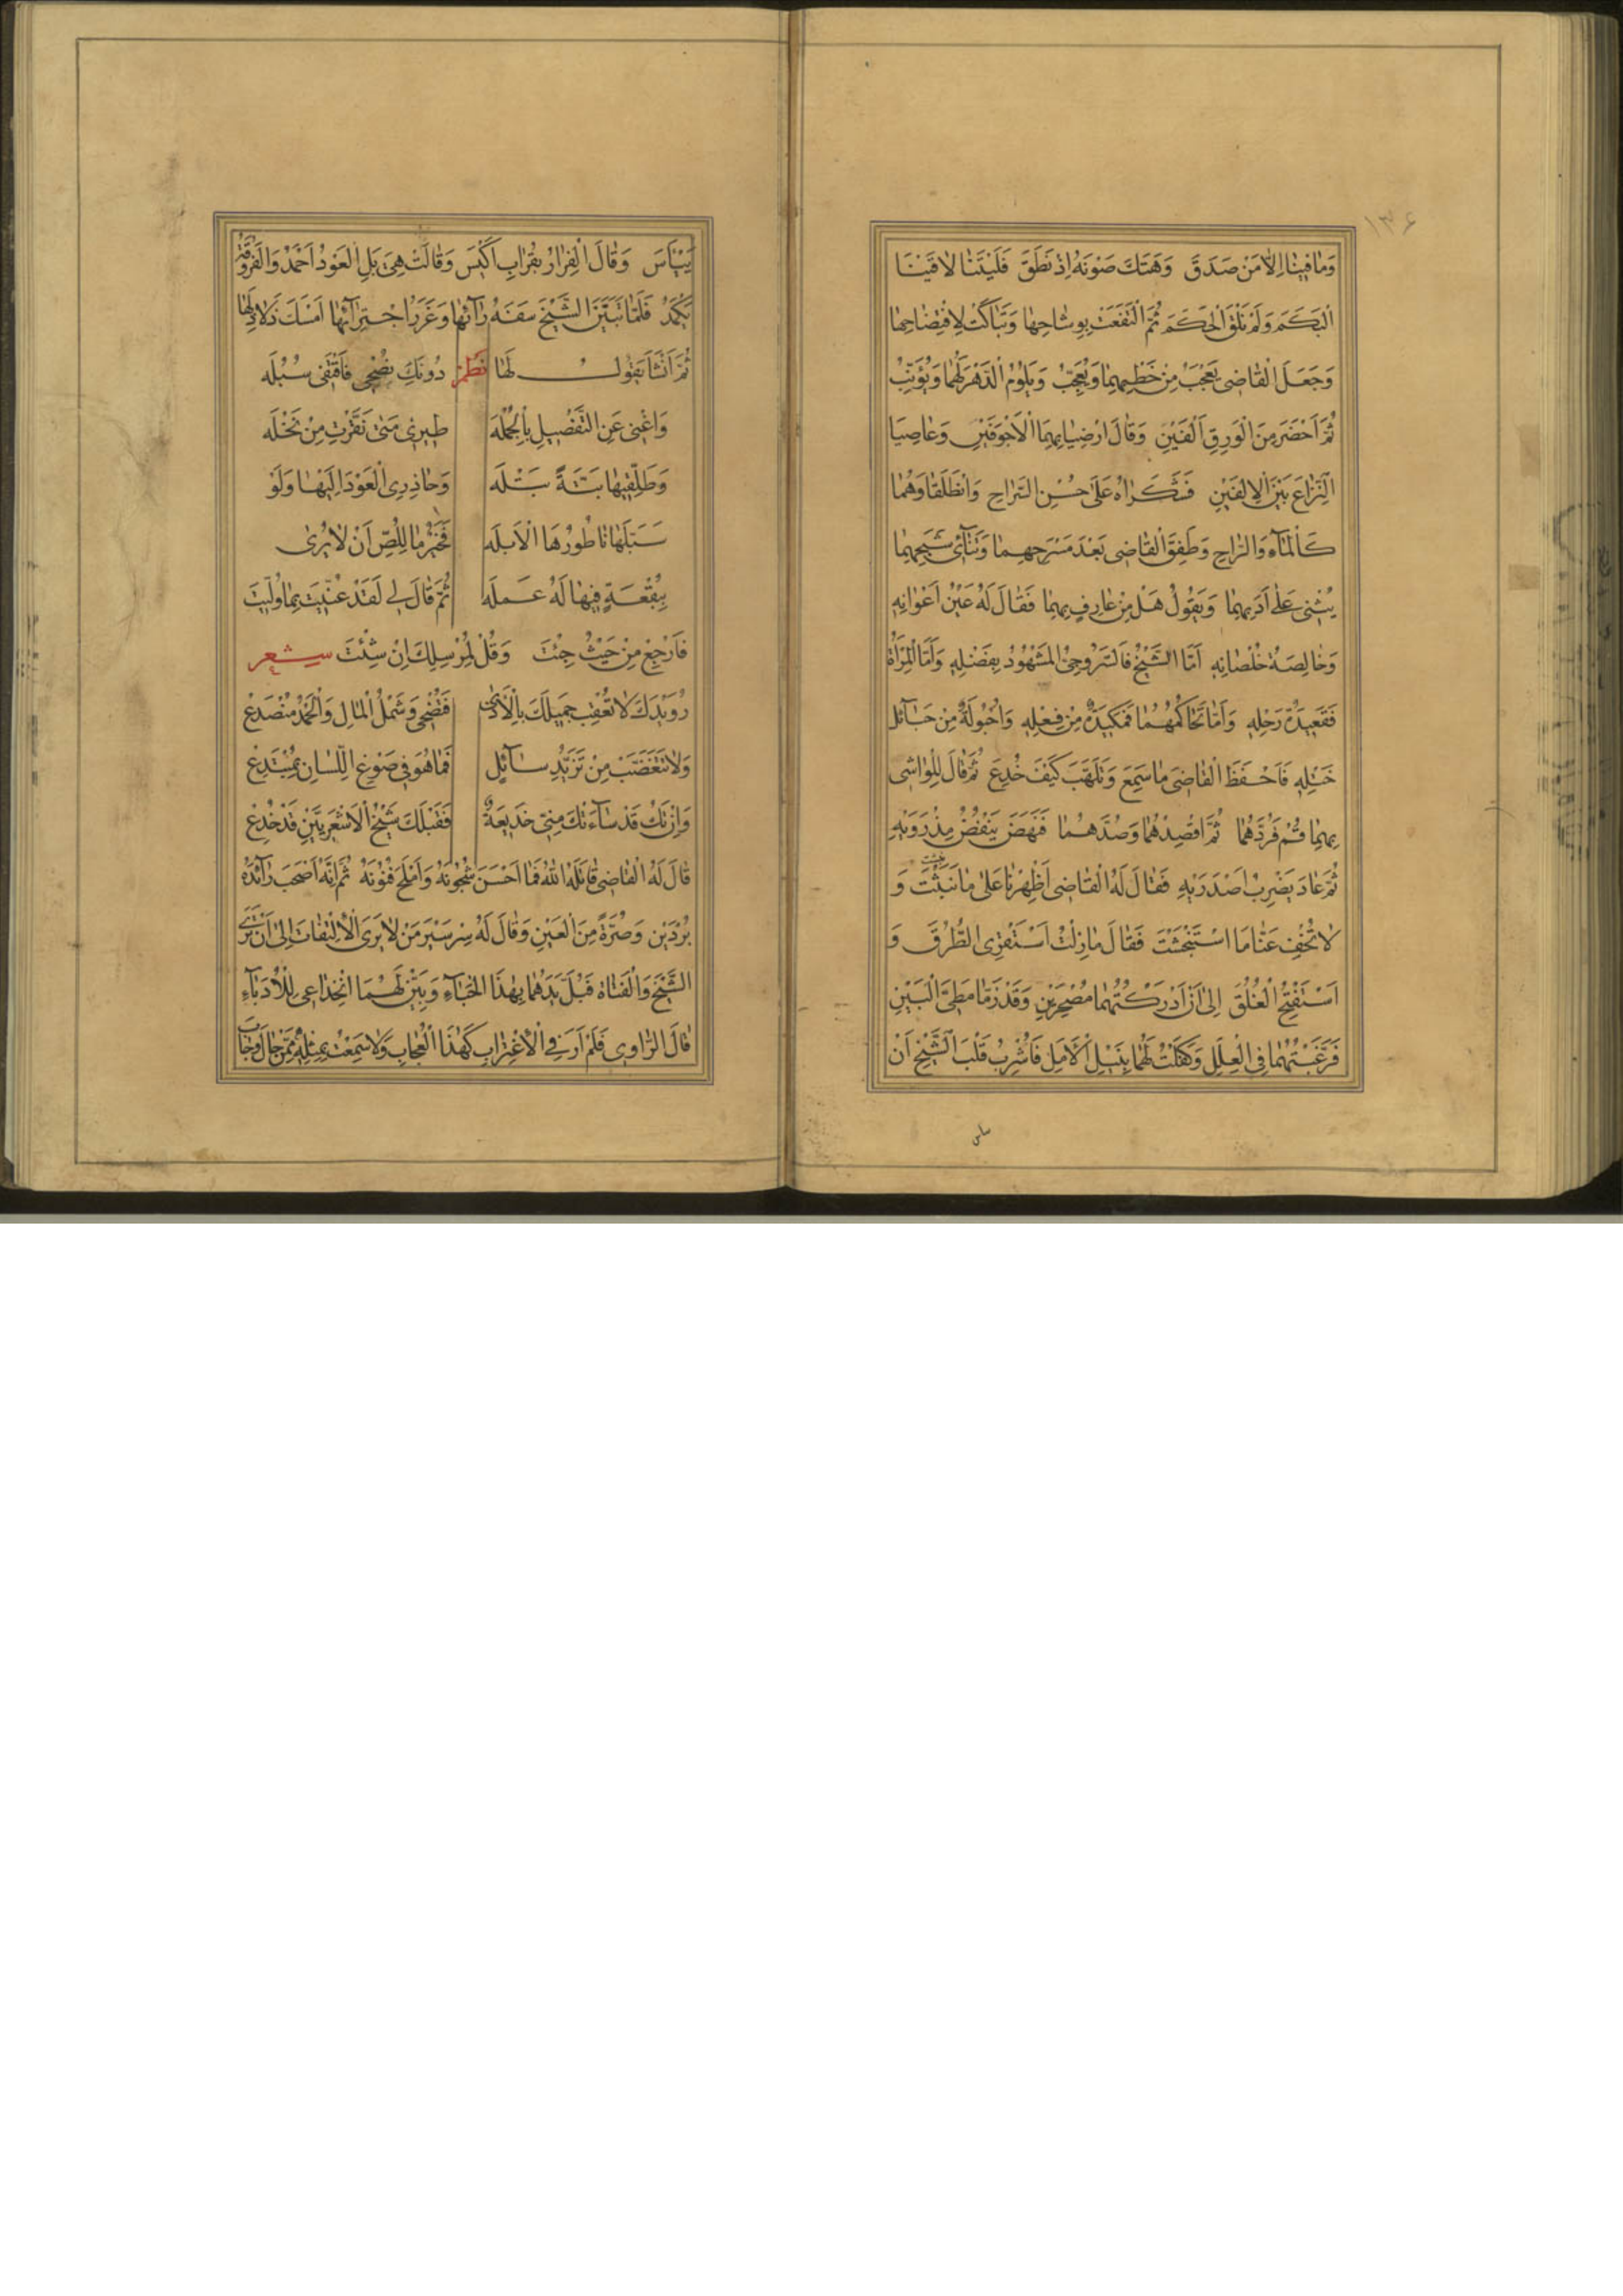 ١٣۶
وَمَا فِينَا اِلَّا مَنْ صَدَقَ وَهَتَكَ صَوْنَهُ اِذْ نَطَقَ فَلَيْتَنَا لَاقَيْنَا
الْبَكَمَ وَلَمْ نَلْقَ الْحَكَمَ ثُمَّ الْتَفَعَتْ بِوِشَاحِهَا وَتَبَاكَتْ لِافْتِضَاحِهَا
وَجَعَلَ الْقَاضِي يَعْجَبُ مِنْ خَطْبِهِمَا وَيُعَجِّبُ وَيَلُومُ الدَّهْرَ لَهُمَا وَيُؤَنِّبُ
ثُمَّ اَحْضَرَ مِنَ الْوَرِقِ اَلْفَيْنِ وَقَالَ ارْضِيَا بِهِمَا الْاَجْوَفَيْنِ وَعَاصِيَا
النِّزَاغَ بَيْنَ الْاِلْفَيْنِ فَشَكَرَاهُ عَلَى حُسْنِ السَّرَاحِ وَانْطَلَقَا وَهُمَا
كَالْمَآءِ وَالرَّاحِ وَطَفِقَ الْقَاضِي بَعْدَ مَسْرَحِهِمَا وَتَنَآئِي شَبَحِهِمَا
يُثْنِي عَلَى اَدَبِهِمَا وَيَقُولُ هَلْ مِنْ عَارِفٍ بِهِمَا فَقَالَ لَهُ عَيْنُ اَعْوَانِهِ
وَخَالِصَةُ خُلْصَانِهِ اَمَّا الشَّيْخُ فَالسَّرُوجِيُّ الْمَشْهُودُ بِفَضْلِهِ وَاَمَّا الْمَرْاَةُ
فَقَعِيدَةُ رَحْلِهِ وَاَمَّا تَحَاكُمُهُمَا فَمَكِيدَةٌ مِنْ فِعْلِهِ وَاُحْبُولَةٌ مِنْ حَبَآئِلِ
خَتْلِهِ فَاَحْفَظَ الْقَاضِيَ مَا سَمِعَ وَتَلَهَّبَ كَيْفَ خُدِعَ ثُمَّ قَالَ لِلْوَاشِي
بِهِمَا قُمْ فَرُدَّهُمَا ثُمَّ اقْصِدْهُمَا وَصُدَّهُمَا فَنَهَضَ يَنْفُضُ مِذْرَوَيْهِ
ثُمَّ عَادَ يَضْرِبُ اَصْدَرَيْهِ فَقَالَ لَهُ الْقَاضِي اَظْهِرْنَا عَلَى مَا نَبَثْتَ وَ
لَا تُخْفِ عَنَّا مَا اسْتَنْجَثْتَ فَقَالَ مَا زِلْتُ اَسْتَقْرِي الطُّرُقَ وَ
اَسْتَفْتِحُ الْغُلُقَ اِلَى اَنْ اَدْرَكْتُهُمَا مُصْحِرَيْنِ وَقَدْ زَمَّا مَطِيَّ الْبَيْنِ
فَرَغَّبْتُهُمَا فِي الْعِلَلِ وَكَفَلْتُ لَهُمَا بِنَيْلِ الْاَمَلِ فَاُشْرِبَ قَلْبُ الشَّيْخِ اَنْ
يَيْاَسَ وَقَالَ الْفِرَارُ بِقُرَابٍ اَكْيَسُ وَقَالَتْ هِيَ بَلِ الْعَوْدُ اَحْمَدُ وَالْفَرُوقَةُ
يَكْمَدُ فَلَمَّا تَبَيَّنَ الشَّيْخُ سَفَهَ رَاْيِهَا وَغَرَرَ اجْتِرَآئِهَا اَمْسَكَ ذَلَاذِلَهَا
ثُمَّ اَنْشَاَ يَقُولُ لَهَا نَظْمٌ دُونَكِ نُصْحِي فَاقْتَفِي سُبْلَه
وَاغْنِي عَنِ التَّفْصِيلِ بِالْجُمْلَه طِيرِي مَتَى نَقَّرْتِ مِنْ نَخْلَه
وَطَلِّقِيهَا بَتَّةً بَتْلَه وَحَاذِرِي الْعَوْدَ اِلَيْهَا وَلَوْ
سَبَّلَهَا نَاطُورُهَا الْاَبْلَه فَخَيْرُ مَا لِلِّصِّ اَنْ لَا يُرَى
بِبُقْعَةٍ فِيهَا لَهُ عَمْلَه ثُمَّ قَالَ لِي لَقَدْ عُنِّيتَ بِمَا وُلِّيتَ
فَارْجِعْ مِنْ حَيْثُ جِئْتَ وَقُلْ لِمُرْسِلِكَ اِنْ شِئْتَ شعر
رُوَيْدَكَ لَا تُعْقِبْ جَمِيلَكَ بِالْاَذَى فَتُضْحِي وَشَمْلُ الْمَالِ وَالْحَمْدِ مُنْصَدِعْ
وَلَا تَتَغَضَّبْ مِنْ تَزَيُّدِ سَآئِلٍ فَمَا هُوَ فِي صَوْغِ اللِّسَانِ بِمُبْتَدِعْ
وَاِنْ تَكُ قَدْ سَآءَتْكَ مِنِّي خَدِيعَةٌ فَقَبْلَكَ شَيْخُ الْاَشْعَرِيِّينَ قَدْ خُدِعْ
قَالَ لَهُ الْقَاضِي قَاتَلَهُ اللهُ فَمَا اَحْسَنَ شُجُونَهُ وَاَمْلَحَ فُنُونَهُ ثُمَّ اِنَّهُ اَصْحَبَ رَآئِدَهُ
بُرْدَيْنِ وَصُرَّةً مِنَ الْعَيْنِ وَقَالَ لَهُ سِرْ سَيْرَ مَنْ لَا يَرَى الْاِلْتِفَاتَ اِلَى اَنْ تَرَى
الشَّيْخَ وَالْفَتَاةَ فَبُلَّ يَدَهُمَا بِهٰذَا الْحِبَآءِ وَبَيِّنْ لَهُمَا انْخِدَاعِي لِلْاُدَبَآءِ
قَالَ الرَّاوِي فَلَمْ اَرَ فِي الْاِغْتِرَابِ كَهٰذَا الْعُجَابِ وَلَا سَمِعْتُ بِمِثْلِهِ مِمَّنْ جَالَ وَجَابَ